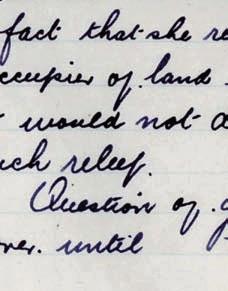 fact that she re
ccupier of land
would not a
uch relief.
Question of
over. until